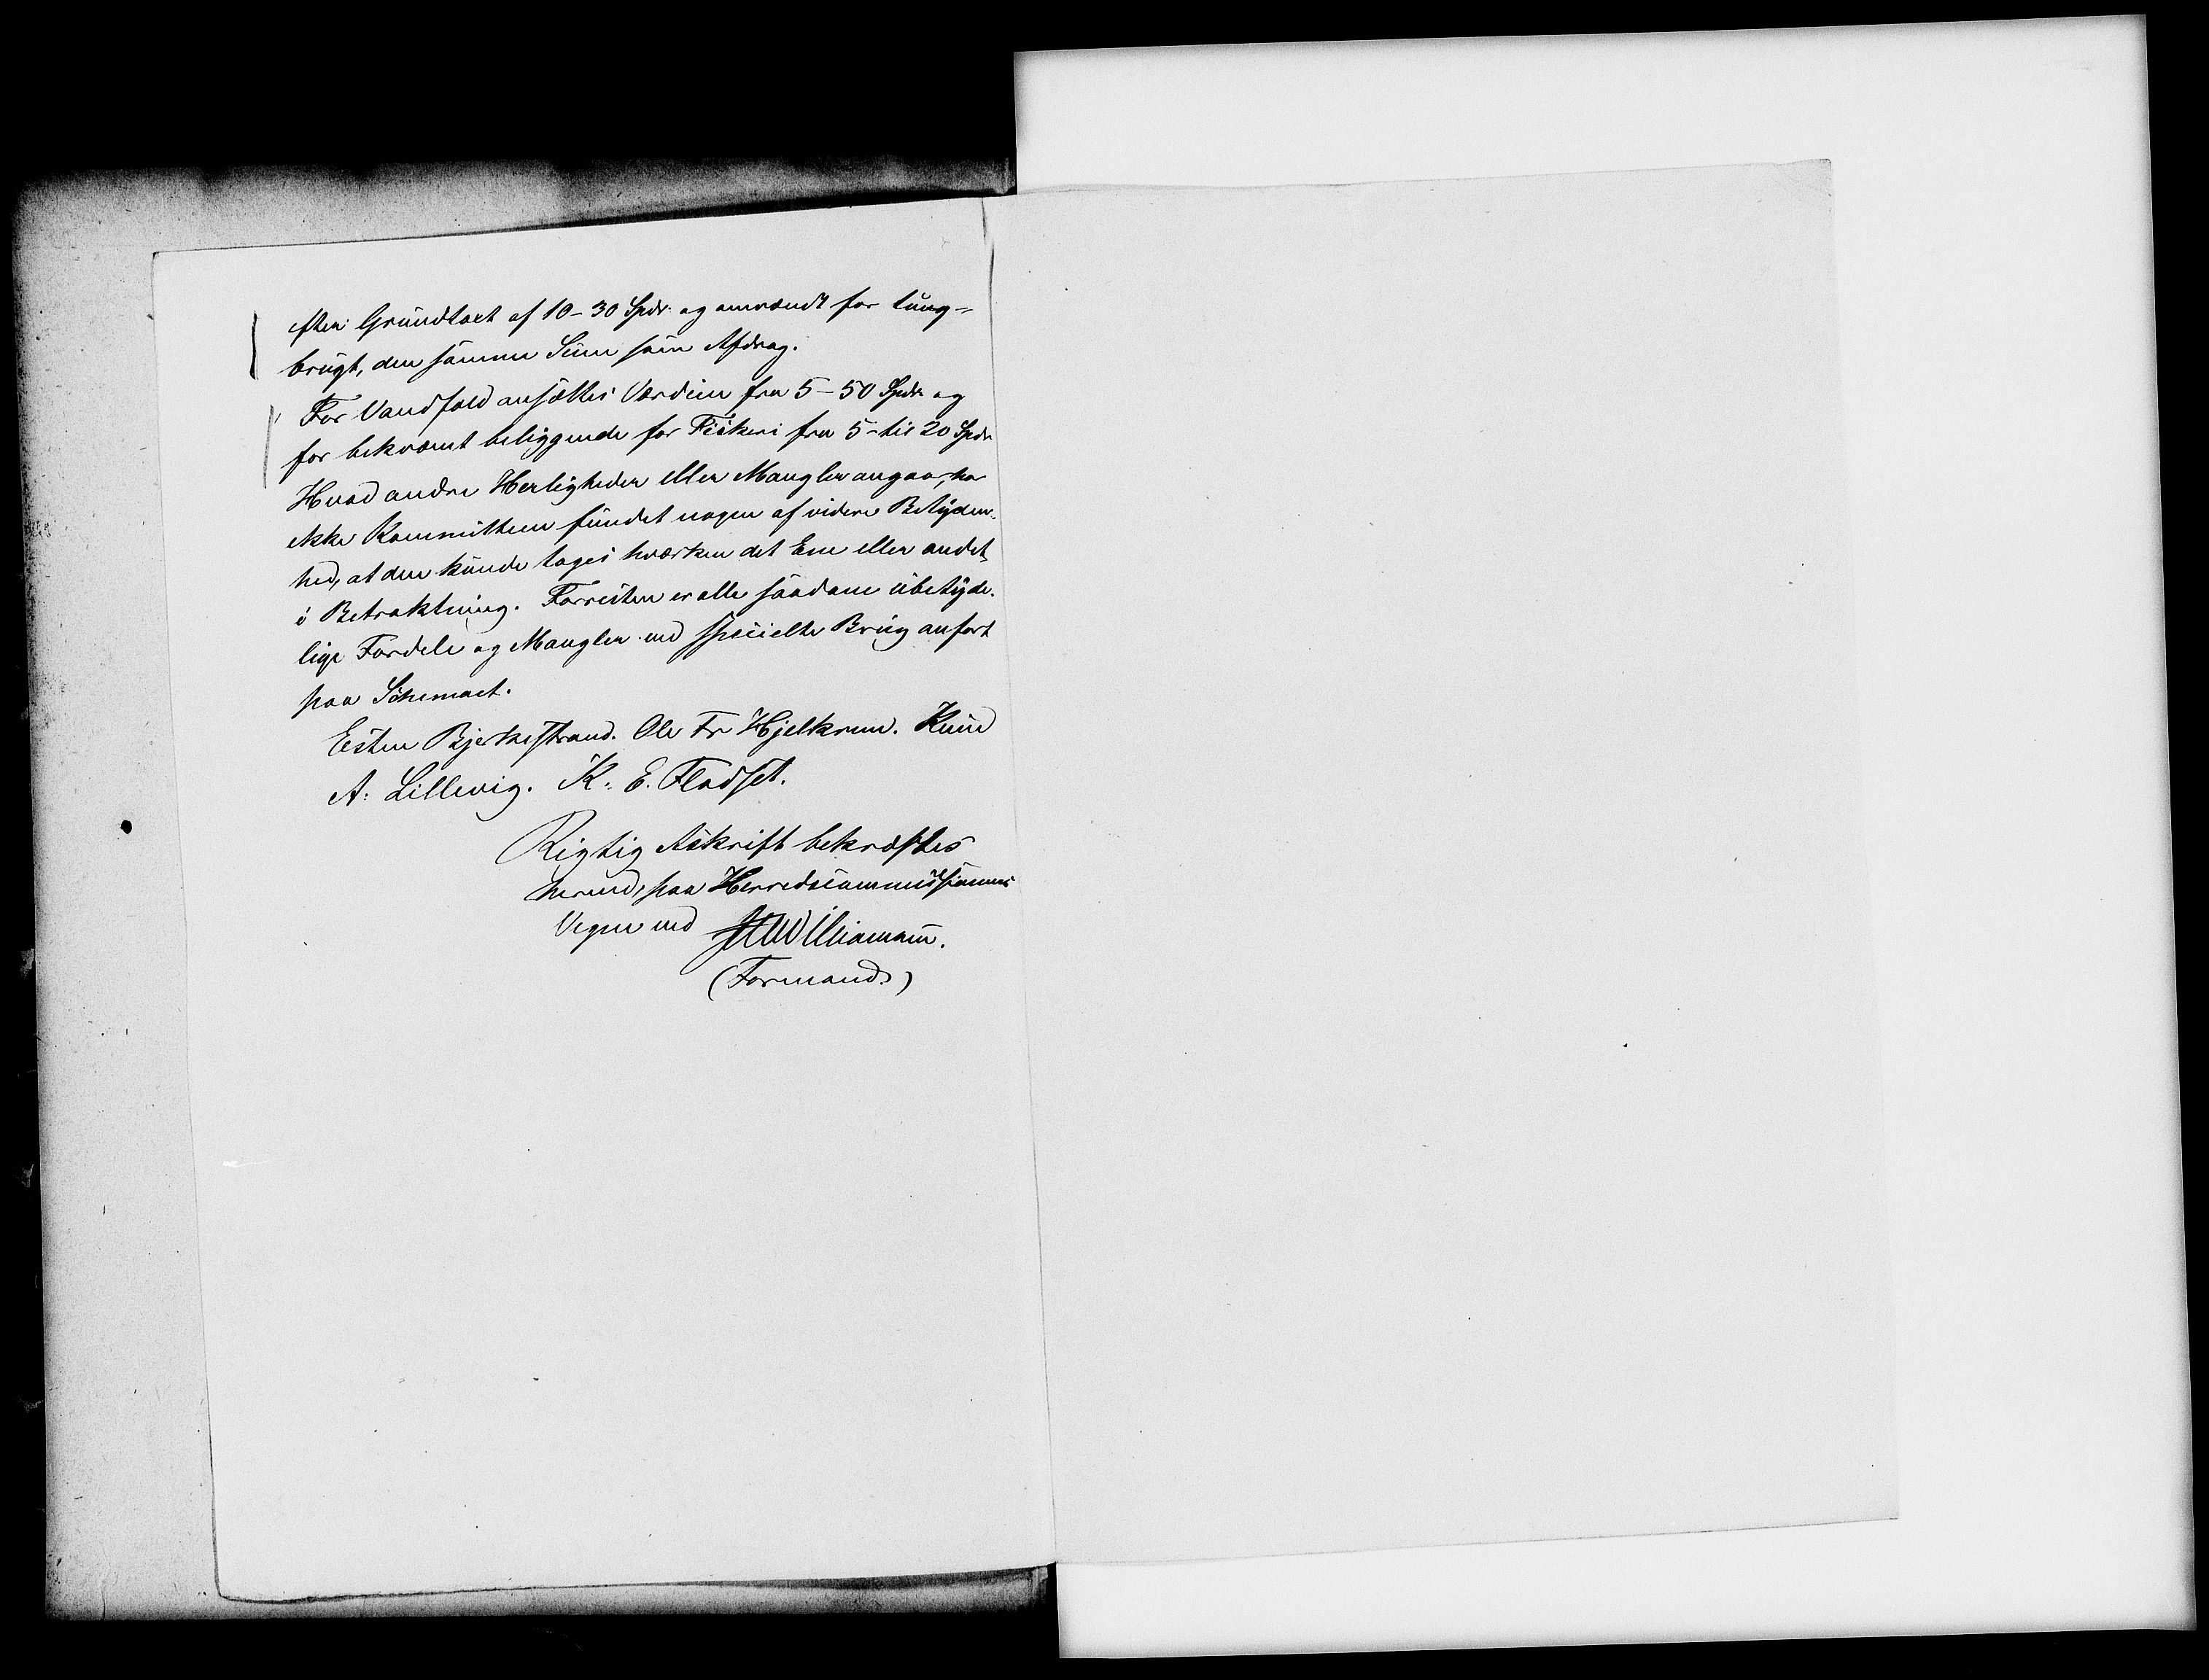 efter Grundtaxt af 10-30 Spdr. og omvendt for tung-
brugt, den samme Sum som Afdrag.
For Vandfald ansættes Værdien fra 5-50 Spdr og
for bekvæmt beliggende for Fiskeri fra 5- til 20 Spdr
Hvad andre Herligheder eller Mangler angaar, har
ikke Kommitteen fundet nogen af videre Betyden-
hed, at den kunde tages hværken det Ene eller andet
i Betraktning. Forresten er alle saadane ubetyde-
lige Fordele og Mangler ved specielle Brug anført
paa Schemaet.
Esten Bjerkestrand. Ole Fr Hjelkrem. Knud
A. Lillevig. K. E. Fladset.
Rigtig Afskrift bekræftes
herved, paa Herredscommissionens
Vegne ved
(Formand.)